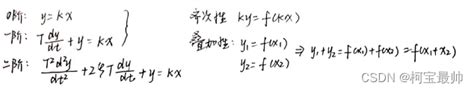 0阶: y=kx
一阶: T dy/dt + y = kx
二阶: T²d²y/dt² + 2ξT dy/dt + y = kx
齐次性 ky=f(kx)
叠加性: y₁=f(x₁)
y₂=f(x₂)
⇒ y₁+y₂=f(x₁)+f(x₂)=f(x₁+x₂)
CSDN @柯宝最帅